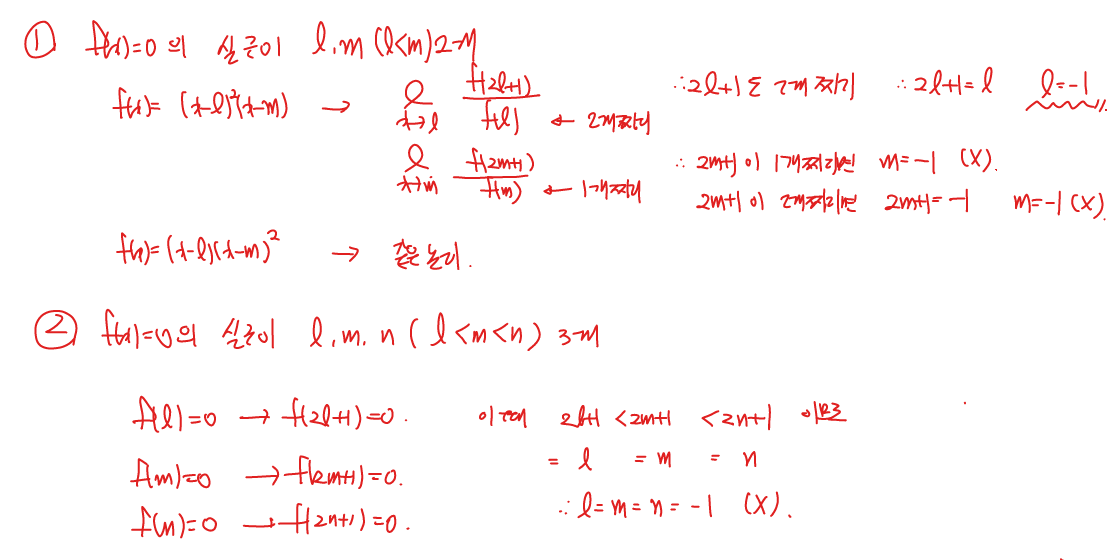 ① f(x)=0 의 실근이 l, m (l<m) 2개
f(x)= (x-l)²(x-m) → lim x→l f(2l+1)/f(l) ← 2개짜리 ∴ 2l+1도 2개짜리 ∴ 2l+1=l l=-1
lim x→m f(2m+1)/f(m) ← 1개짜리 ∴ 2m+1이 1개짜리면 m=-1 (X).
2m+1이 2개짜리면 2m+1=-1 m=-1 (X).
f(x)=(x-l)(x-m)² → 같은 논리.
② f(x)=0의 실근이 l, m, n ( l<m<n ) 3개
f(l)=0 → f(2l+1)=0. 이때 2l+1 <2m+1 <2n+1 이므로
f(m)=0 → f(2m+1)=0. = l = m = n
f(n)=0 → f(2n+1)=0. ∴ l=m=n=-1 (X).